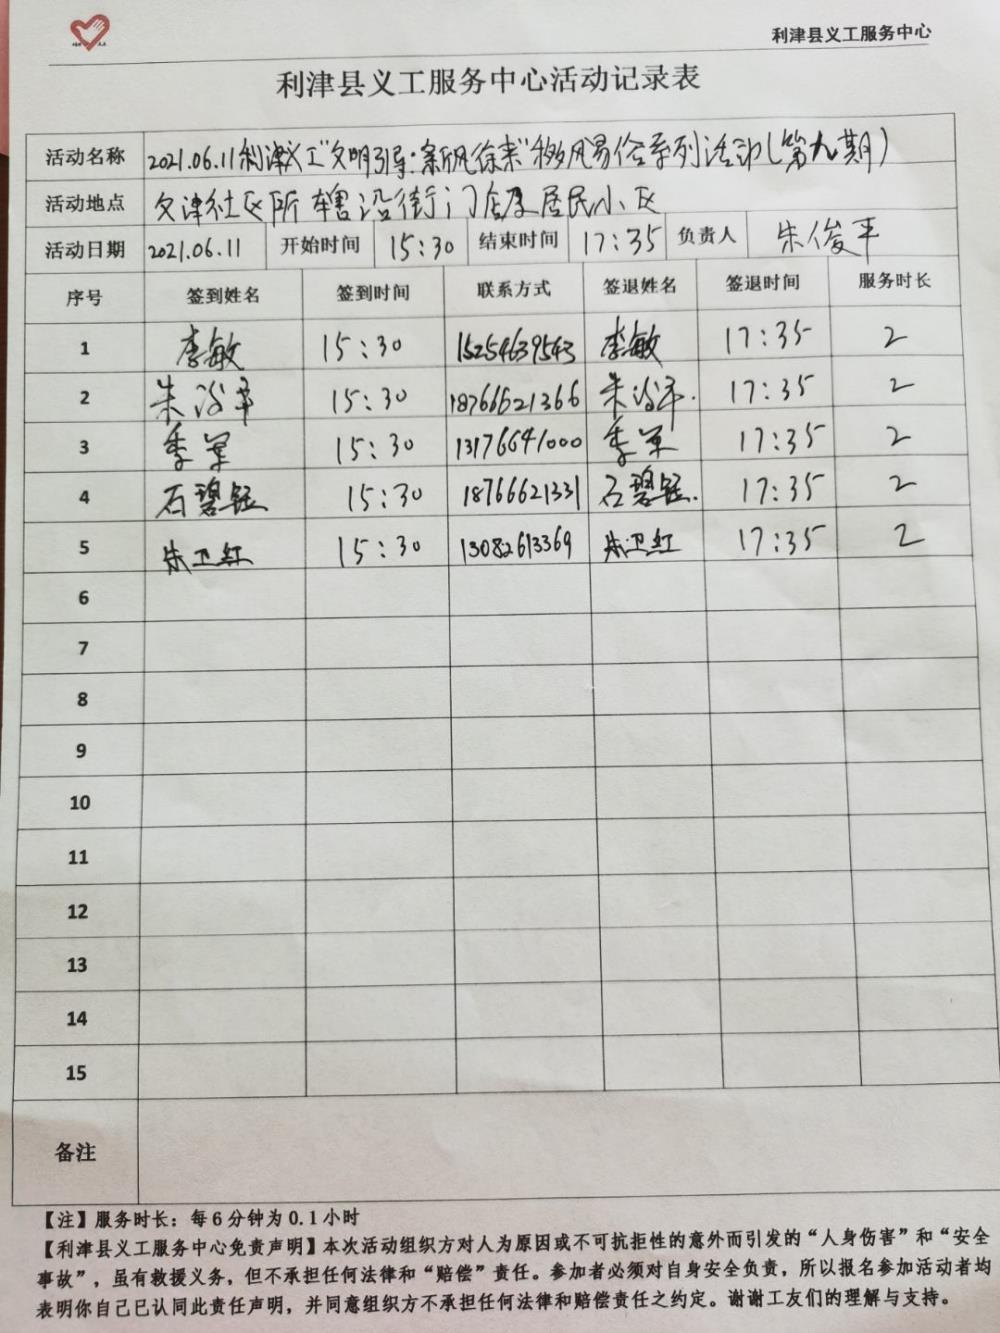 利津县义工服务中心
利津县义工服务中心活动记录表
活动名称 2021.06.11利津义工"文明引导·新风徐来"移风易俗系列活动(第九期)
活动地点 文津社区所辖沿街门店及居民小区
活动日期 2021.06.11 开始时间 15:30 结束时间 17:35 负责人 朱俊平
序号 签到姓名 签到时间 联系方式 签退姓名 签退时间 服务时长
1 李敏 15:30 15254639543 李敏 17:35 2
2 朱俊平 15:30 18766621366 朱俊平. 17:35 2
3 季军 15:30 13176641000 季军 17:35 2
4 石碧钰 15:30 18766621331 石碧钰. 17:35 2
5 朱卫红 15:30 13082613369 朱卫红 17:35 2
6
7
8
9
10
11
12
13
14
15
备注
【注】服务时长：每6分钟为0.1小时
【利津县义工服务中心免责声明】本次活动组织方对人为原因或不可抗拒性的意外而引发的“人身伤害”和“安全
事故”，虽有救援义务，但不承担任何法律和“赔偿”责任。参加者必须对自身安全负责，所以报名参加活动者均
表明你自己已认同此责任声明，并同意组织方不承担任何法律和赔偿责任之约定。谢谢工友们的理解与支持。